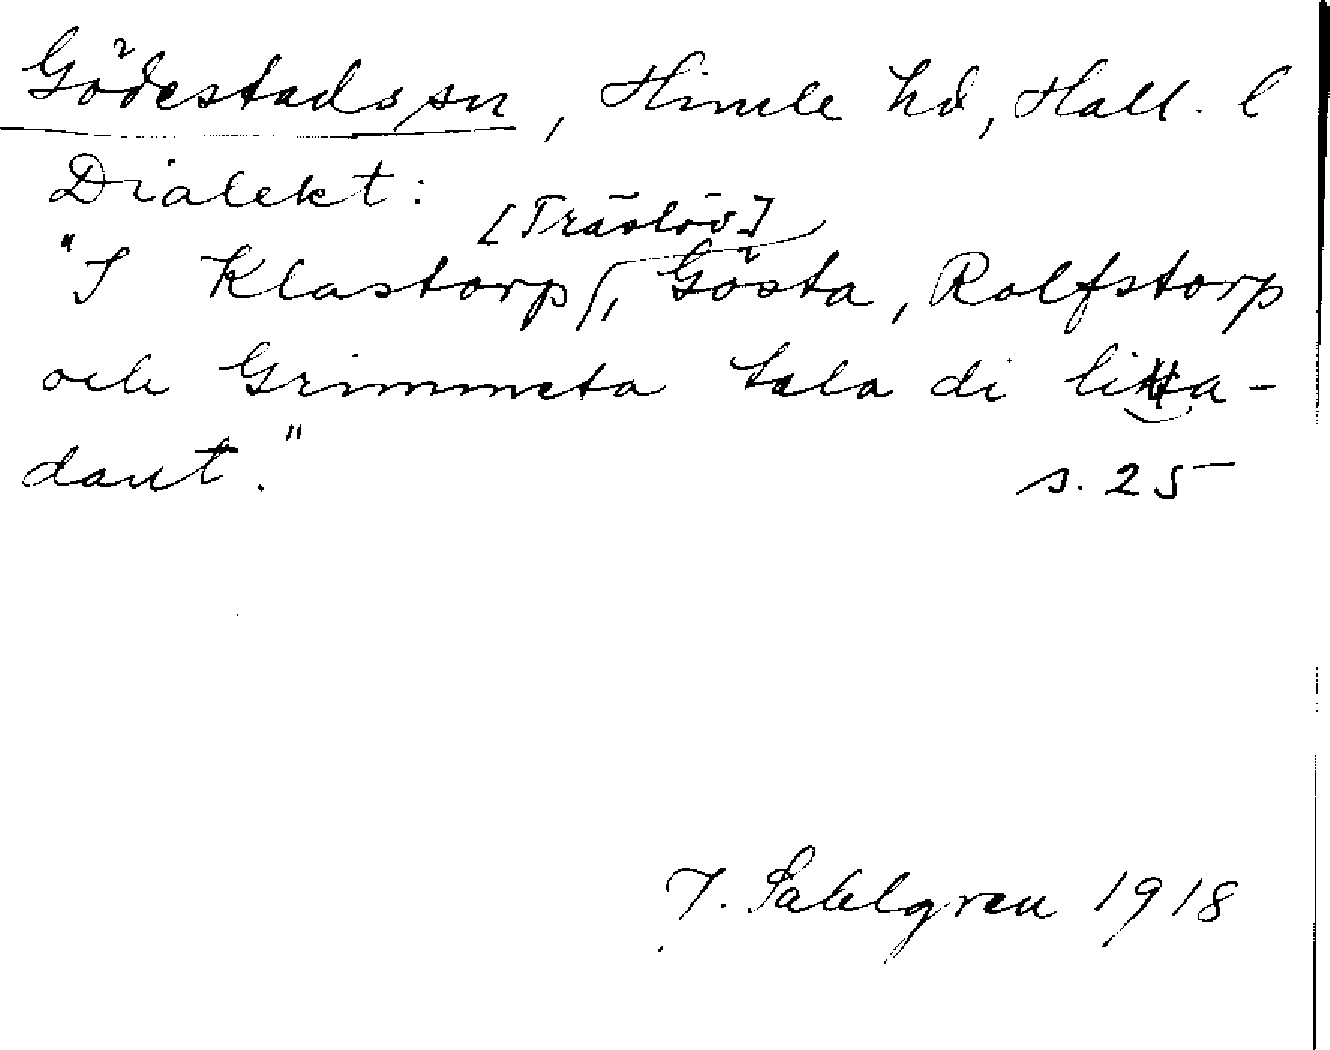 Gödestads sn, Himle hd, Hall. l
Dialekt:
[Träslöv]
"I Klastorp, Gösta, Rolfstorp
och Grimmeta tala di litta-
dant."
s. 25
J. Sahlgren 1918